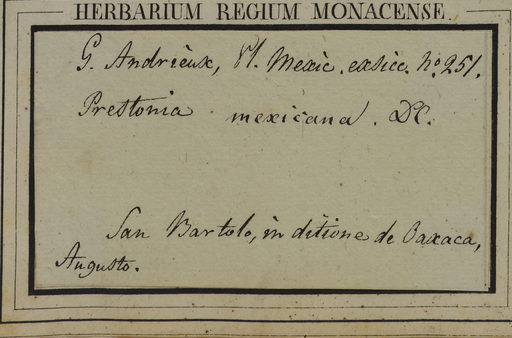 HERBARIUM REGIUM MONACENSE
G. Andrieux, Pl. Mexic. exsicc. No. 251.
Prestonia mexicana. DC.
San Bartolo, in ditione de Oaxaca,
Augusto.